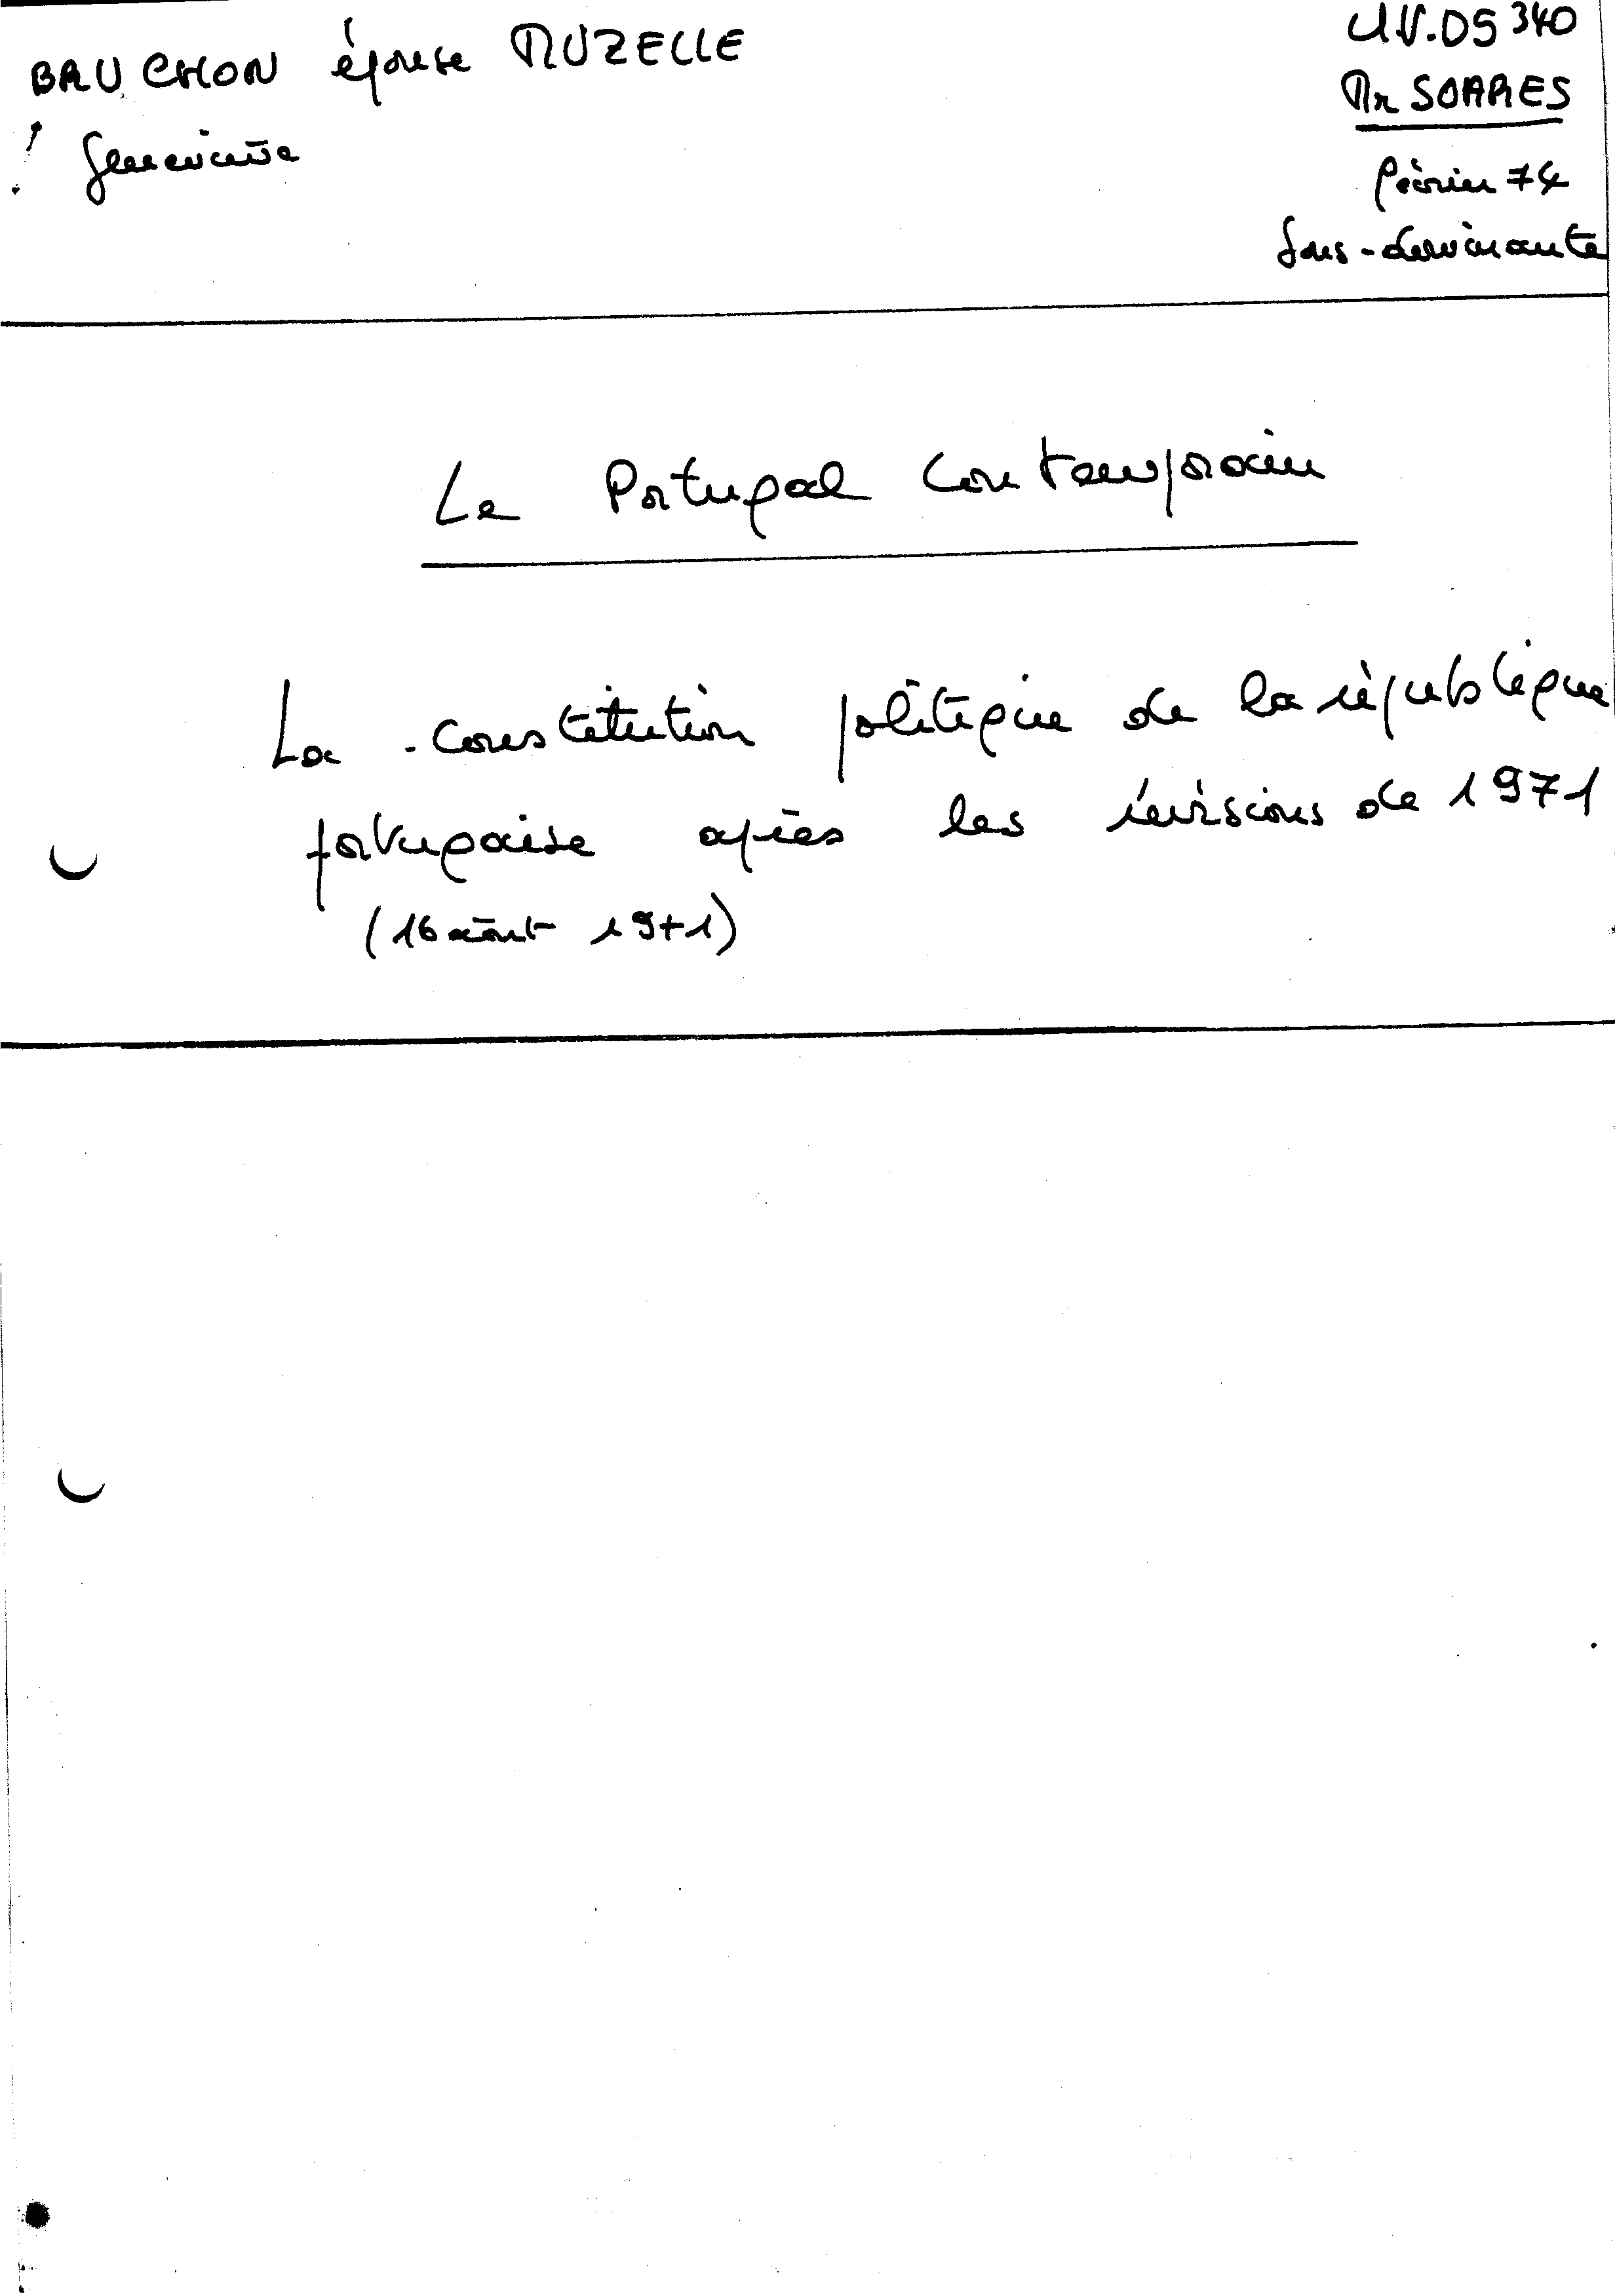 BAUCHON épouse MUZELLE
Geneviève
U.V. DS 340
Mr SOARES
février 74
Sous-dominante
Le Portugal contemporain
La constitution politique de la république
portugaise après les révisions de 1971
(16 août 1971)